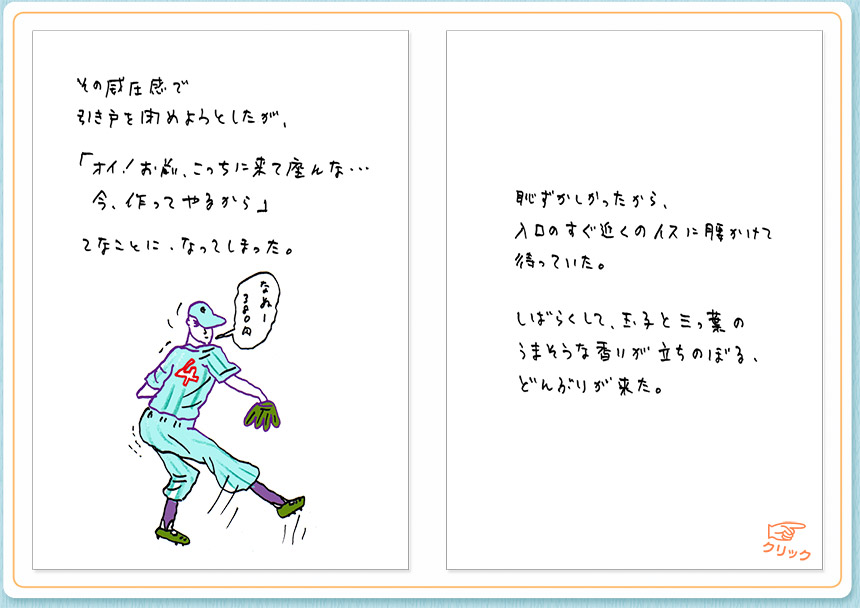 その威圧感で
引き戸を閉めようとしたが、
「オイ!お前、こっちに来て座んな・・・
今、作ってやるから」
てなことに、なってしまった。
なぬー
380円
4
恥ずかしかったから、
入口のすぐ近くのイスに腰かけて
待っていた。
しばらくして、玉子と三っ葉の
うまそうな香りが立ちのぼる、
どんぶりが来た。
クリック